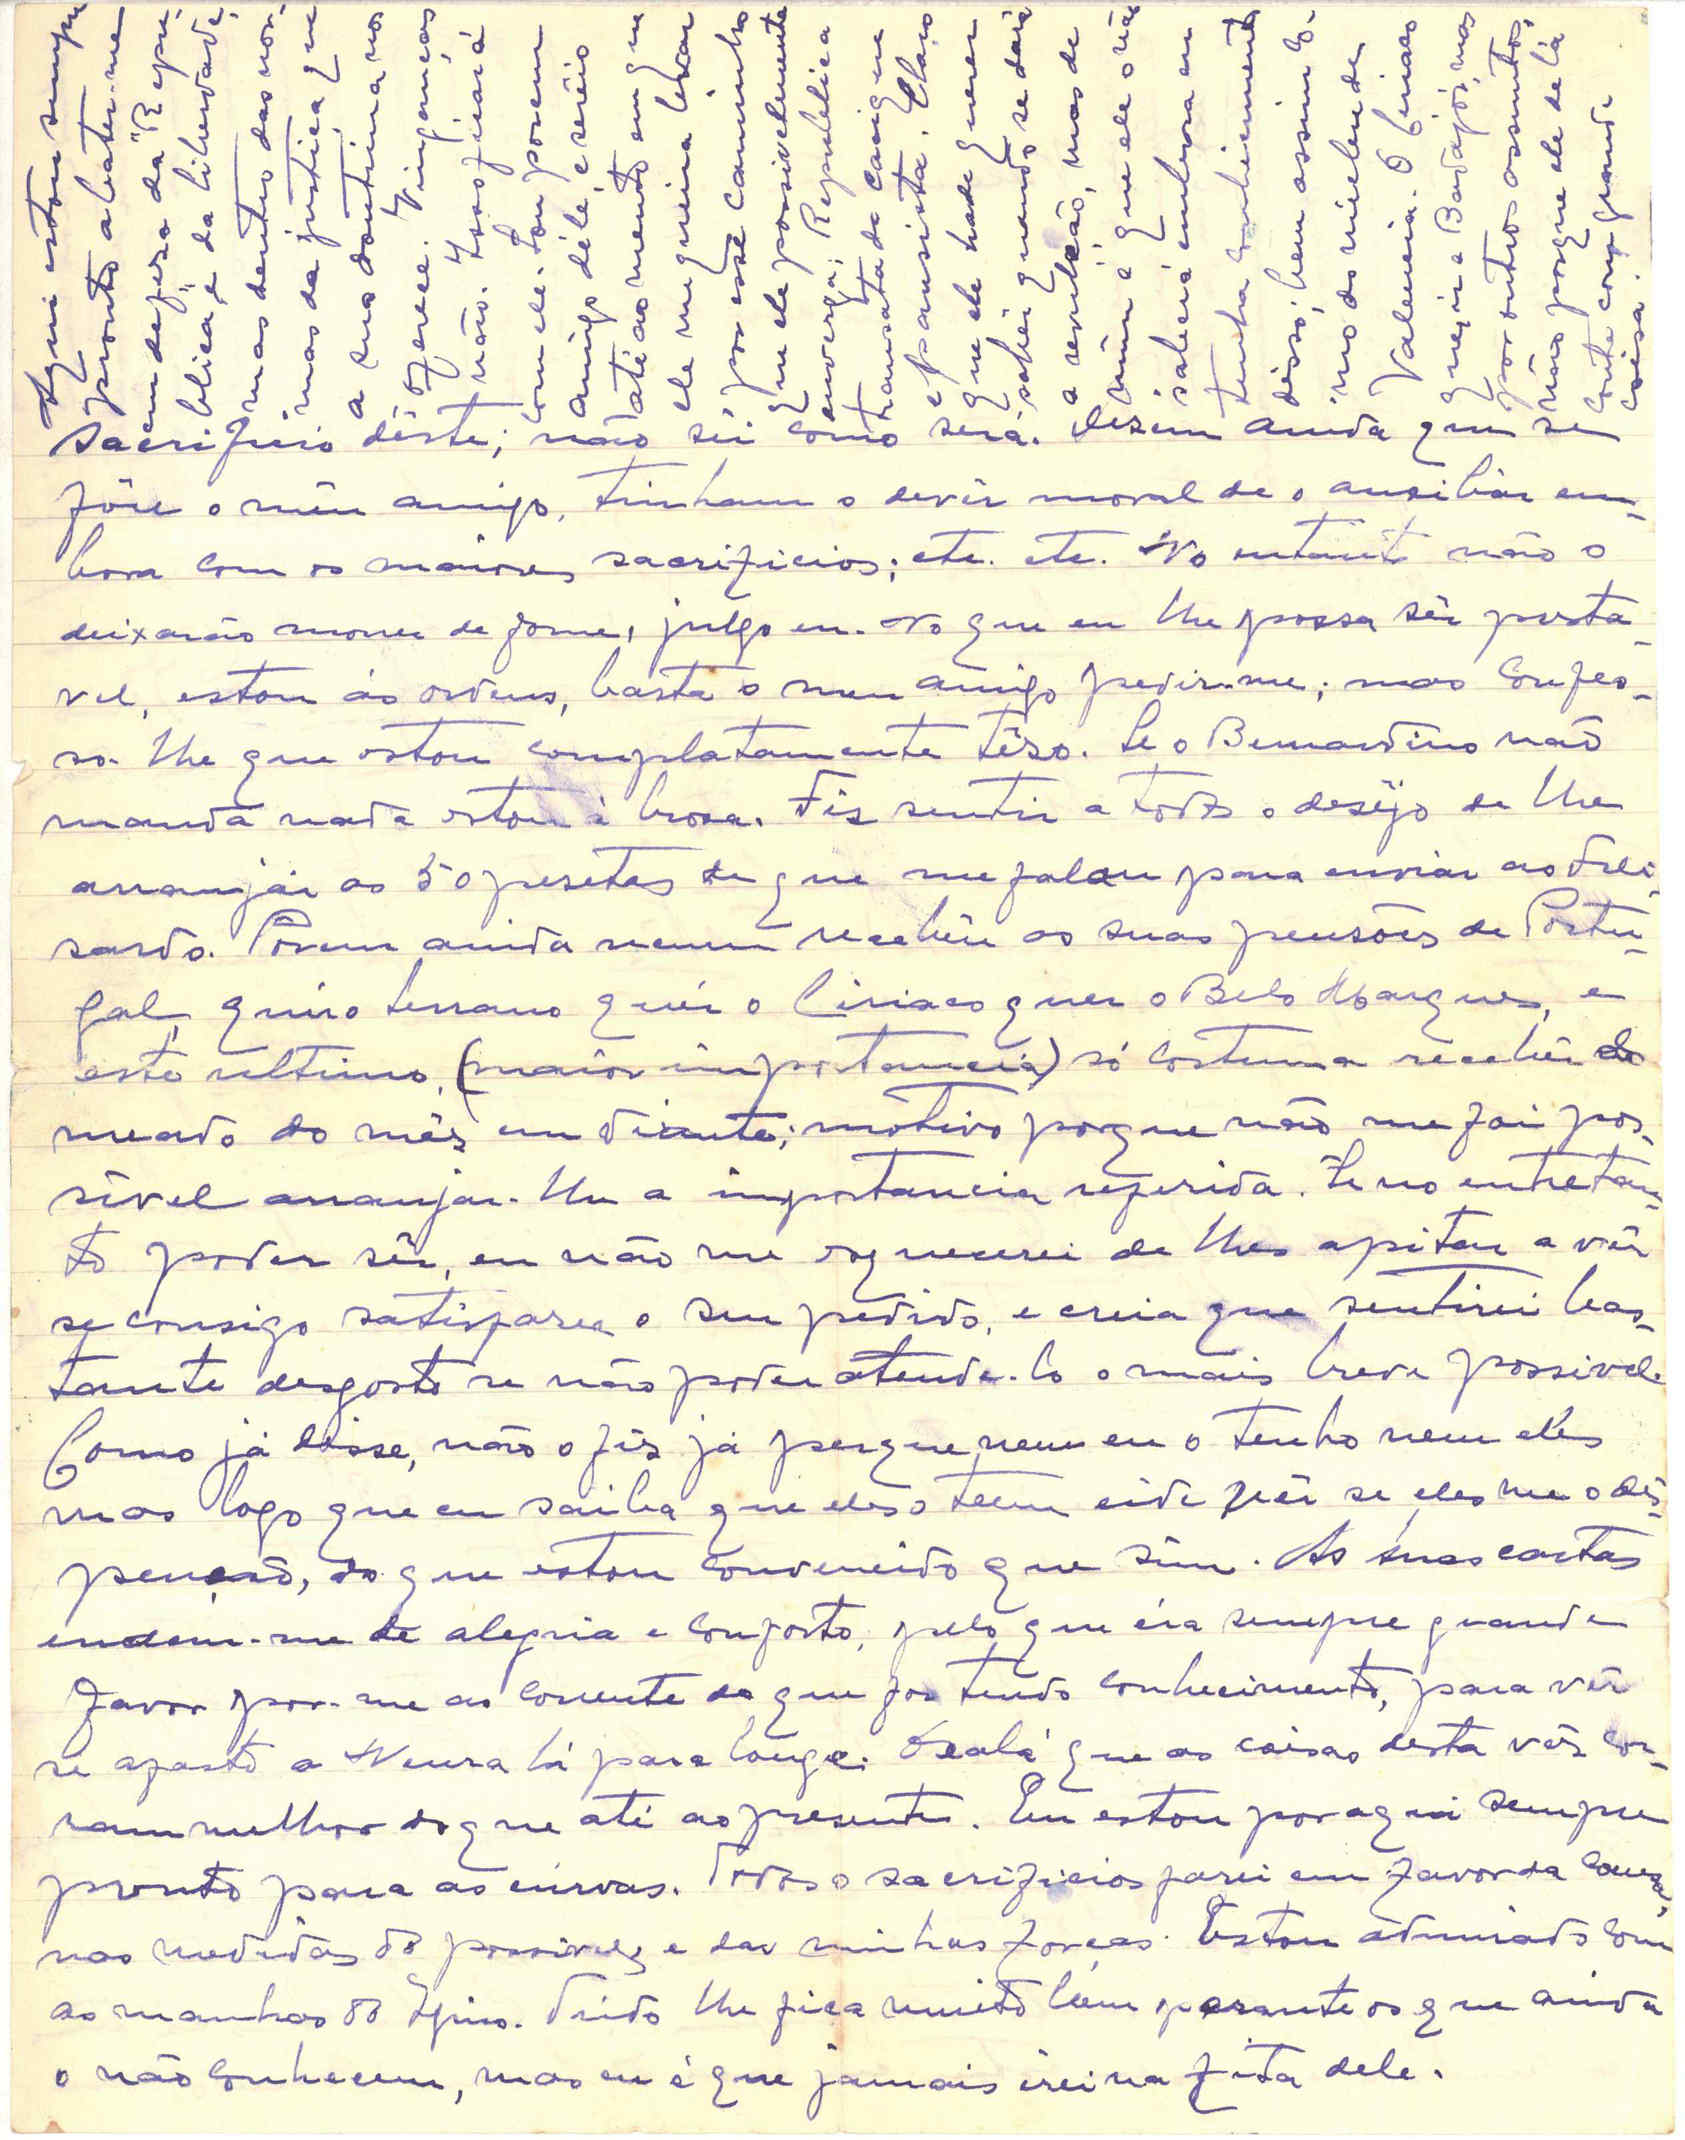 sacrificio dêste; não sei como será. Dizem ainda que se
fôsse o meu amigo, tinham o devêr moral de o auxiliar em-
bora com os maiores sacrificios; etc. etc. No entanto não o
deixarão morrer de fome, julgo eu. No que eu lhe possa sêr presta-
vel, estou ás ordens, basta o meu amigo pedir-me; mas confes-
so-lhe que estou complatamente têso. Se o Bernardino não
manda nada estou á brosa. Fiz sentir a todos o desêjo de lhe
arranjár as 50 pesetas de que me falou para enviár ao Feli-
sardo. Porem ainda nenum recebêu as suas pensões de Portu-
gal, quér o Serrano quér o Ciriaco quer o Belo Marques, e
este ultimo, (maiór importancia) só costuma recebêr do
meado do mês em diante; motivo porque não me foi pos-
sivel arranjar-lhe a importancia referida. Se no entretan-
to poder sêr, eu não me esquecerei de lhes apitar a vêr
se consigo satisfazer o seu pedido, e creia que sentirei bas-
tante desgosto se não poder atende-lo o mais breve possivel.
Como já disse, não o fiz já porque nem eu o tenho nem eles
mas logo que eu saiba que eles o teem vêr se eles me o dis-
pensão, do que estou convencido que sim. As suas cartas
enchem-me de alegria e conforto, pelo que éra sempre grande
favor pôr-me ao corrente do que fôr tendo conhecimento, para vêr
se afasto a Neura lá para longe. Oxalá que as coisas desta vês cor-
ram melhor do que até ao presente. Eu estou por aqui sempre
pronto para as curvas. Todos o sacrificios farei em favor da causa,
nas medidas do possivel e das minhas forças. Estou admirado com
as manhas do. Tudo lhe fica muito bem perante os que ainda
o não conhecem, mas eu é que jamais irei na fita dele.
Aqui estou sempre
pronto a bater-me
em defeza da Repu-
blica, e da liberdade,
mas dentro das nor-
mas da justiça, que
a sua doutrina nos
oferece. Vinganças
não. Isso ficará
com ele. Sou porem
amigo dele, e serêi
até ao mento em que
ele me queira levar
por esse caminho
que ele possivelmente
enverga; Republica
transata do cacique
e pausista. Claro
que ele hade querer
saber quando se dará
a revulsão, mas de
mim é que ele o não
saberá embora eu
tenha conhecimento
disso; bem assim co-
mo dos mielende
Valencia. O Ciriaco
quer ir a Badajós, mas
por outros assuntos,
não porque ele de lá
conte com grande
coisa.